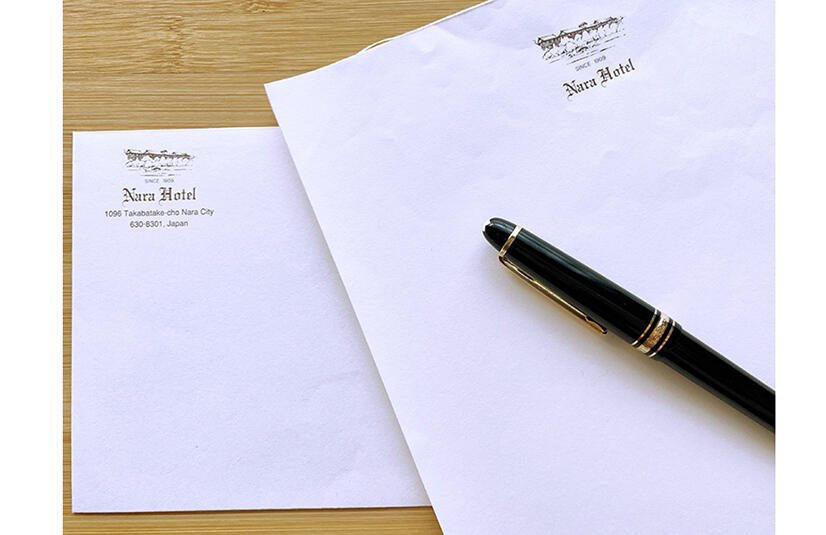 SINCE 1909
Nara Hotel
1096 Takabatake-cho Nara City
630-8301, Japan
SINCE 1909
Nara Hotel